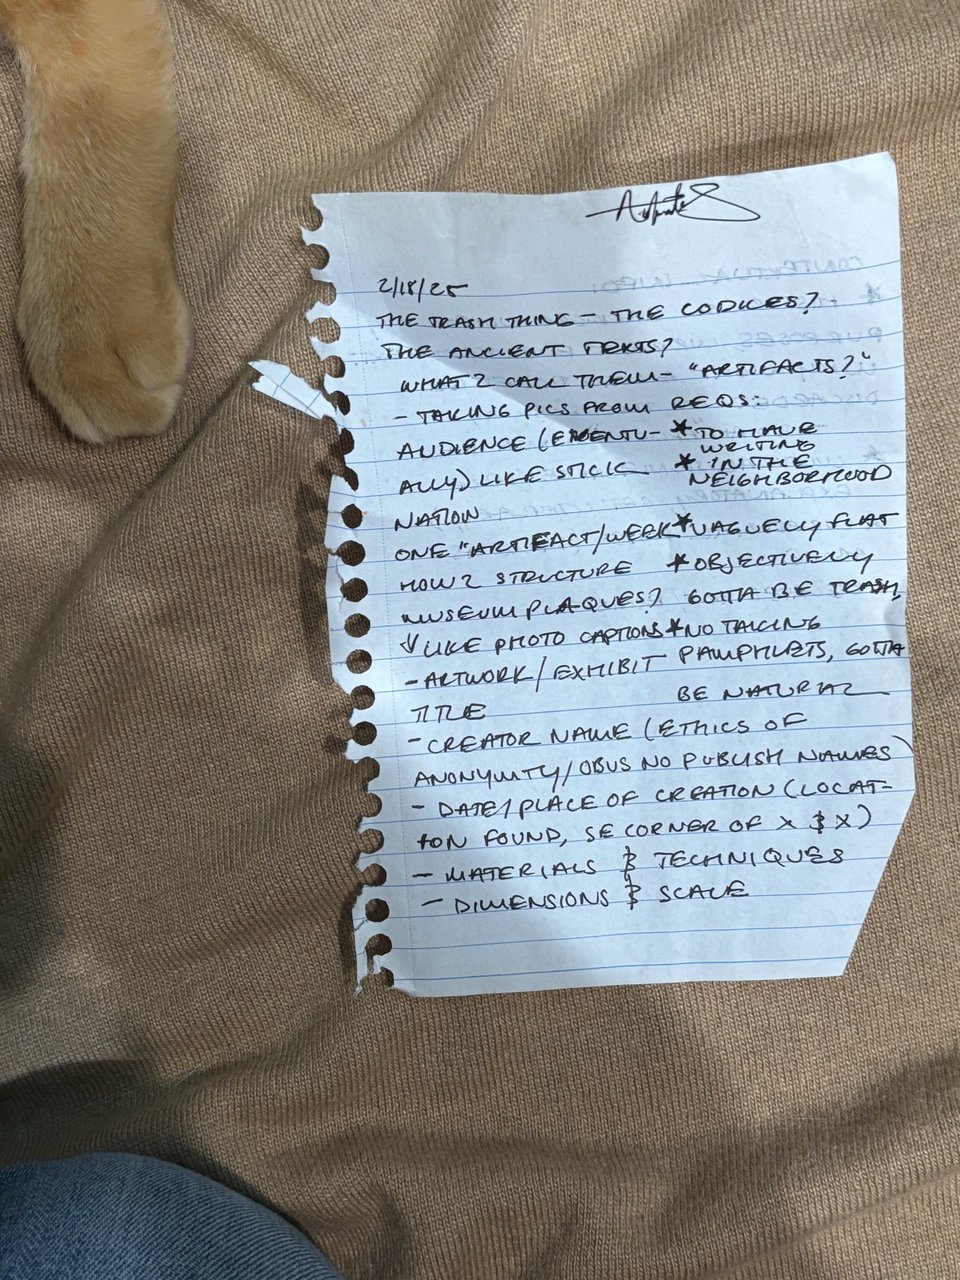 2/18/25
THE TRASH THING - THE CODICES?
THE ANCIENT TEXTS?
WHAT 2 CALL THEM - "ARTIFACTS?"
- TAKING PICS FROM
AUDIENCE (EVENTU-
ALLY) LIKE STICK
NATION
ONE "ARTIFACT/WEEK
HOW 2 STRUCTURE
MUSEUM PLAQUES?
↓ LIKE PHOTO CAPTIONS
- ARTWORK/EXHIBIT
TITLE
REQS:
* TO HAVE
WRITING
* IN THE
NEIGHBORHOOD
* VAGUELY FLAT
* OBJECTIVELY
GOTTA BE TRASH,
* NO TAKING
PAMPHLETS, GOTTA
BE NATURAL
- CREATOR NAME (ETHICS OF
ANONYMITY/OBVS NO PUBLISH NAMES)
- DATE/PLACE OF CREATION (LOCAT-
ION FOUND, SE CORNER OF X & X)
- MATERIALS & TECHNIQUES
- DIMENSIONS & SCALE